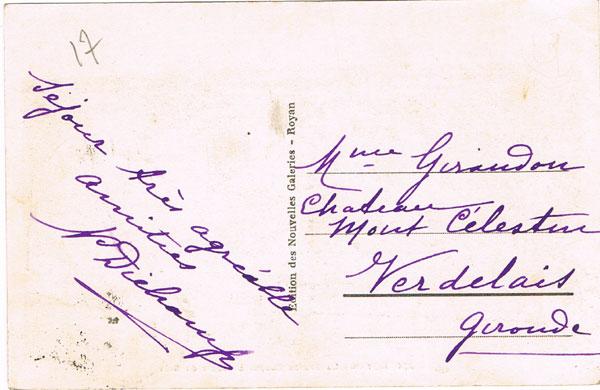 17
Séjour très agréable
amitiés
Edition des Nouvelles Galeries - Royan
Mme Giraudon
Chateau
Mont Célestin
Verdelais
Gironde